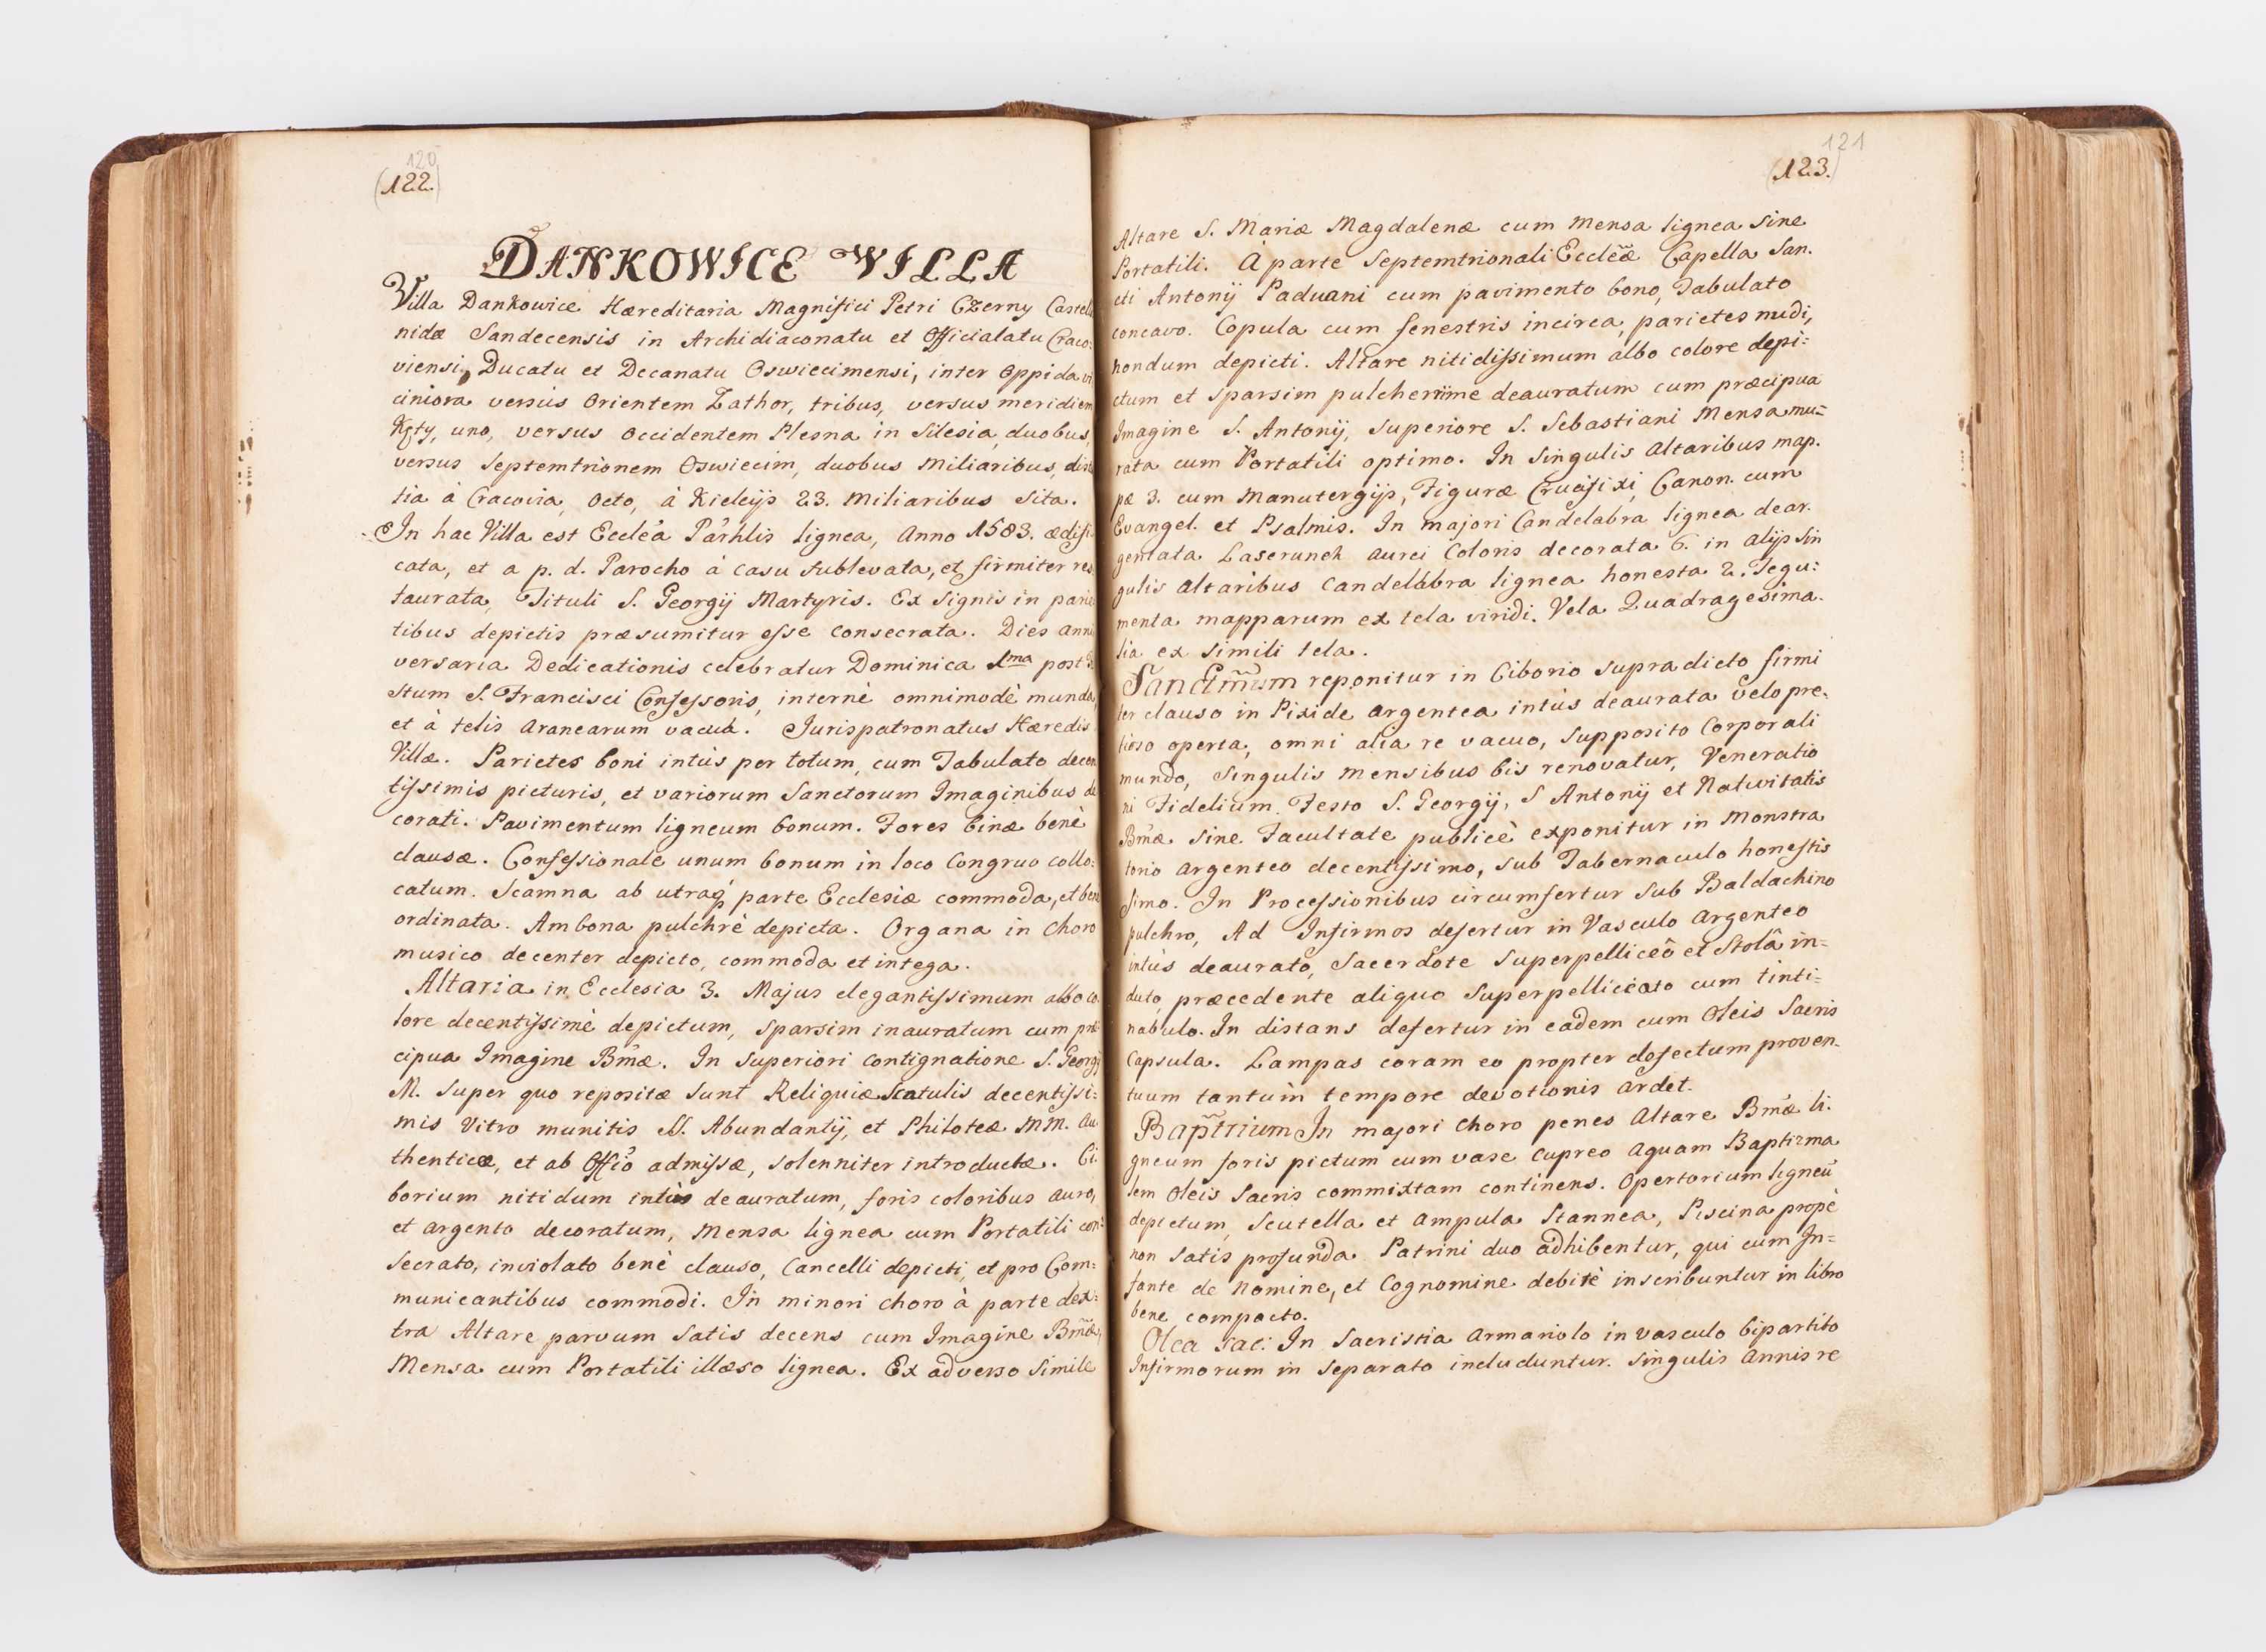 120
(122.)
DANKOWICE VILLA
Villa Dankowice Hæreditaria Magnifici Petri Czerny Castella
nidæ Sandecensis in Archidiaconatu et Officialatu Craco:
viensi, Ducatu et Decanatu Oswiecimensi, inter Oppida vi
ciniora versus Orientem Zathor, tribus, versus meridiem
Kęty, uno, versus Occidentem Plesna in Silesia, duobus,
versus Septemtrionem Oswiecim, duobus Miliaribus, dis
tia à Cracovia, Octo, à Kielcijs 23. Miliaribus Sita.
In hac Villa est Eccléa Párhlis lignea, Anno 1583. ædifi
cata, et a p. d. Parocho à casu sublevata, et firmiter res
taurata, Tituli S. Georgij Martyris. Ex Signis in parie
tibus depictis præsumitur esse consecrata. Dies Anni
versaria Dedicationis celebratur Dominica 1ma post Fe
stum S. Francisci Confessoris, internè omnimodè munda,
et à telis Aranearum vacua. Jurispatronatus Hæredis
Villæ. Parietes boni intùs per totum, cum Tabulato decen
tissimis picturis, et variorum Sanctorum Imaginibus de
corati. Pavimentum ligneum bonum. Fores binæ benè
clausæ. Confessionale unum bonum in loco Congruo collo:
catum. Scamna ab utraq parte Ecclesiæ commoda, et bene
ordinata. Ambona pulchrè depicta. Organa in Choro
musico decenter depicto, commoda et intega.
Altaria in Ecclesia 3. Majus elegantissimum albo co
lore decentissimè depictum, sparsim inauratum cum præ
cipua Imagine Bmæ. In Superiori contignatione S. Georgij
M. Super quo repositæ sunt Reliquiæ Scatulis decentissi:
mis Vitro munitis SS. Abundantij, et Philoteæ MM. Au
thenticæ, et ab Offió admissæ, solenniter introductæ. Ci:
borium nitidum intùs deauratum, foris coloribus auro,
et argento decoratum, Mensa lignea cum Portatili con:
secrato, inviolato benè clauso, Cancelli depicti, et pro Com:
municantibus commodi. In minori Choro à parte dex:
tra Altare parvum Satis decens cum Imagine Bmæ,
Mensa cum Portatili illæso lignea. Ex adverso Simile
121
(123.)
Altare S. Mariæ Magdalenæ cum Mensa lignea sine
Portatili. A parte Septemtrionali Eccleæ Capella San.
cti Antonij Paduani cum pavimento bono, Tabulato
concavo. Copula cum fenestris incirca, parietes nudi,
nondum depicti. Altare nitidissimum albo colore depi:
ctum et sparsim pulcherrime deauratum cum præcipua
Imagine S. Antonij, Superiore S. Sebastiani Mensa mu=
rata cum Portatili optimo. In Singulis Altaribus map.
pæ 3. cum Manutergijs, Figuræ Crucifixi, Canon. cum
Evangel. et Psalmis. In majori Candelabra lignea dear.
gentata Laserunek aurei Coloris decorata 6. in Alijs Sin
gulis Altaribus Candelabra lignea honesta 2. Tegu:
menta mapparum ex tela viridi. Vela Quadragesima.
lia ex simili tela.
Sanctm̃um reponitur in Ciborio supradicto firmi
ter clauso in Pixide argentea intùs deaurata velo pre.
tioso operta, omni alia re vacuo, Supposito Corporali
mundo, Singulis Mensibus bis renovatur, Veneratio
ni Fidelium Festo S. Georgij, S Antonij et Nativitatis
Bmæ sine Facultate publicè exponitur in Monstra
torio argenteo decentissimo, sub Tabernaculo honestis
simo. In Processionibus circumfertur Sub Baldachino
pulchro, Ad Infirmos defertur in Vasculo Argenteo
intùs deaurato, Sacerdote Superpelliceô et Stolâ in=
duto, præcedente aliquo Superpelliceato cum tinti=
nabulo. In distans defertur in eadem cum Oleis Sacris
Capsula. Lampas coram eo propter defectum proven.
tuum tantùm tempore devotionis ardet.
Bap̃trium In majori Choro penes Altare Bmæ li.
gneum foris pictum cum vase cupreo Aquam Baptizma
lem Oleis Sacris commixtam continens. Opertorium ligneū
depictum, Scutella et Ampula Stannea, Piscina propè
non satis profunda. Patrini duo adhibentur, qui cum In=
fante de Nomine, et Cognomine debitè inscribuntur in libro
bene compacto.
Olea Sac: In Sacristia Armariolo in vasculo bipartito
Infirmorum in Separato includuntur. Singulis Annis re